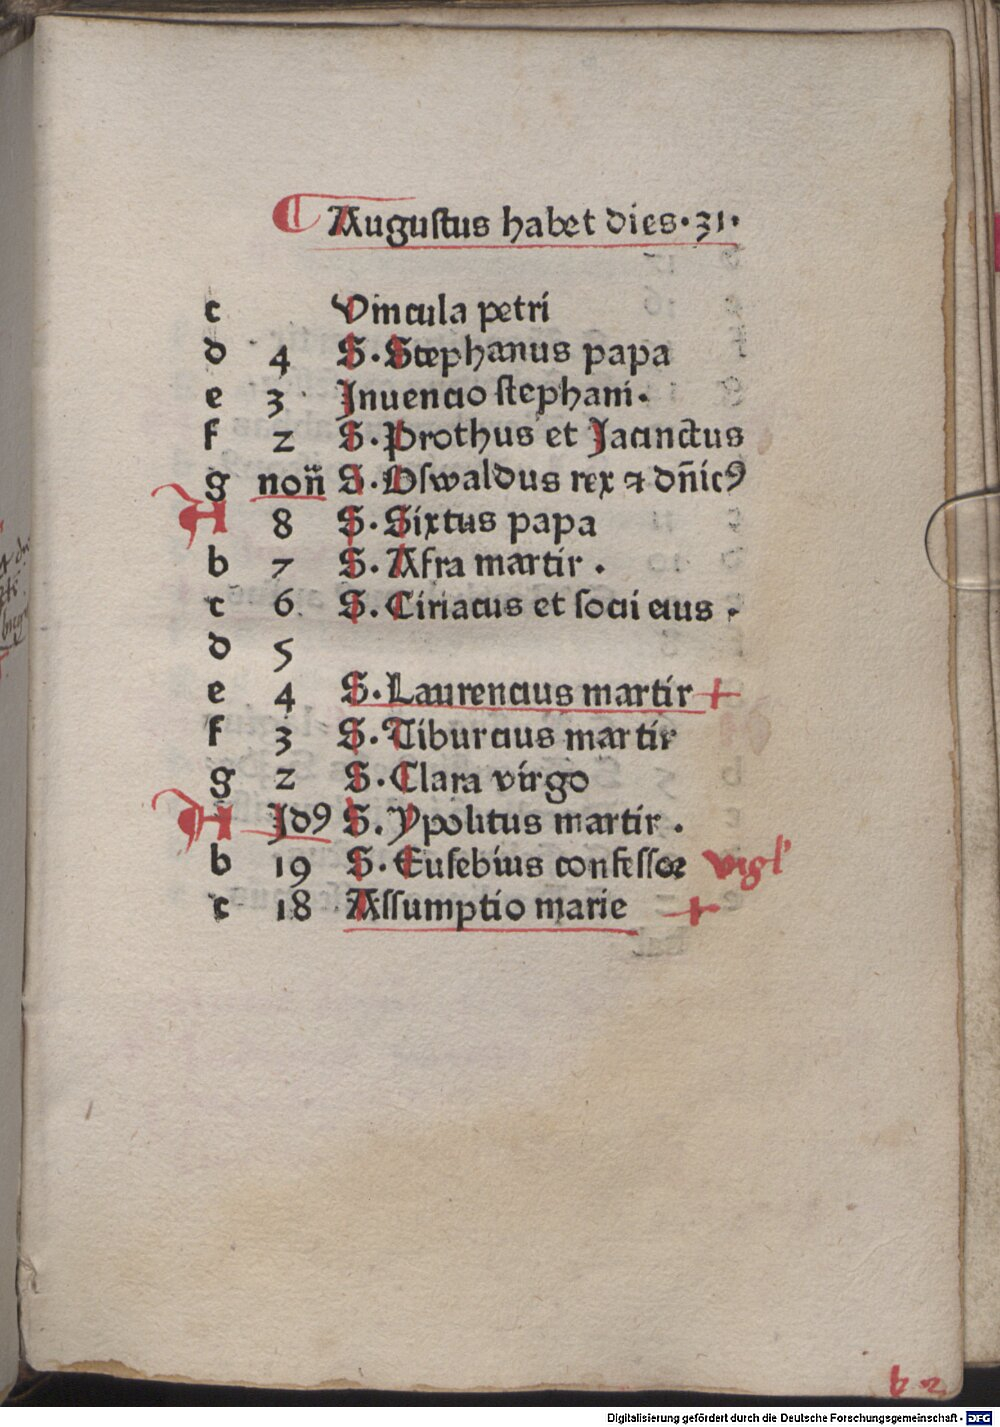 ¶ Augustus habet dies·31·
c Vincula petri
d 4 S. Stephanus papa
e 3 Inuencio stephani.
f 2 S. Prothus et Jacinctus
g non̄ S. Oswaldus rex ⁊ dn̄icꝯ
A 8 S. Sixtus papa
b 7 S. Afra martir.
c 6 S. Ciriacus et socii eius.
d 5
e 4 S. Laurencius martir +
f 3 S. Tiburcius martir
g 2 S. Clara virgo
A Jdꝯ S. Ypolitus martir.
b 19 S. Eusebius confessor vigl'
c 18 Assumptio marie +
b 2
Digitalisierung gefördert durch die Deutsche Forschungsgemeinschaft - DFG